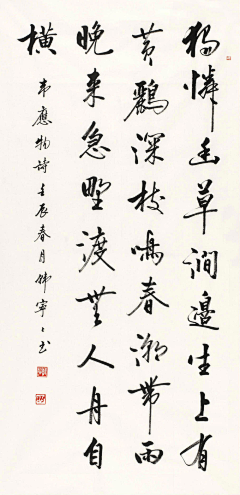 獨憐幽草澗邊生上有
黄鸝深枝鳴春潮帶雨
晚来急野渡無人舟自
橫
韋應物詩壬辰春月韓寧〻书